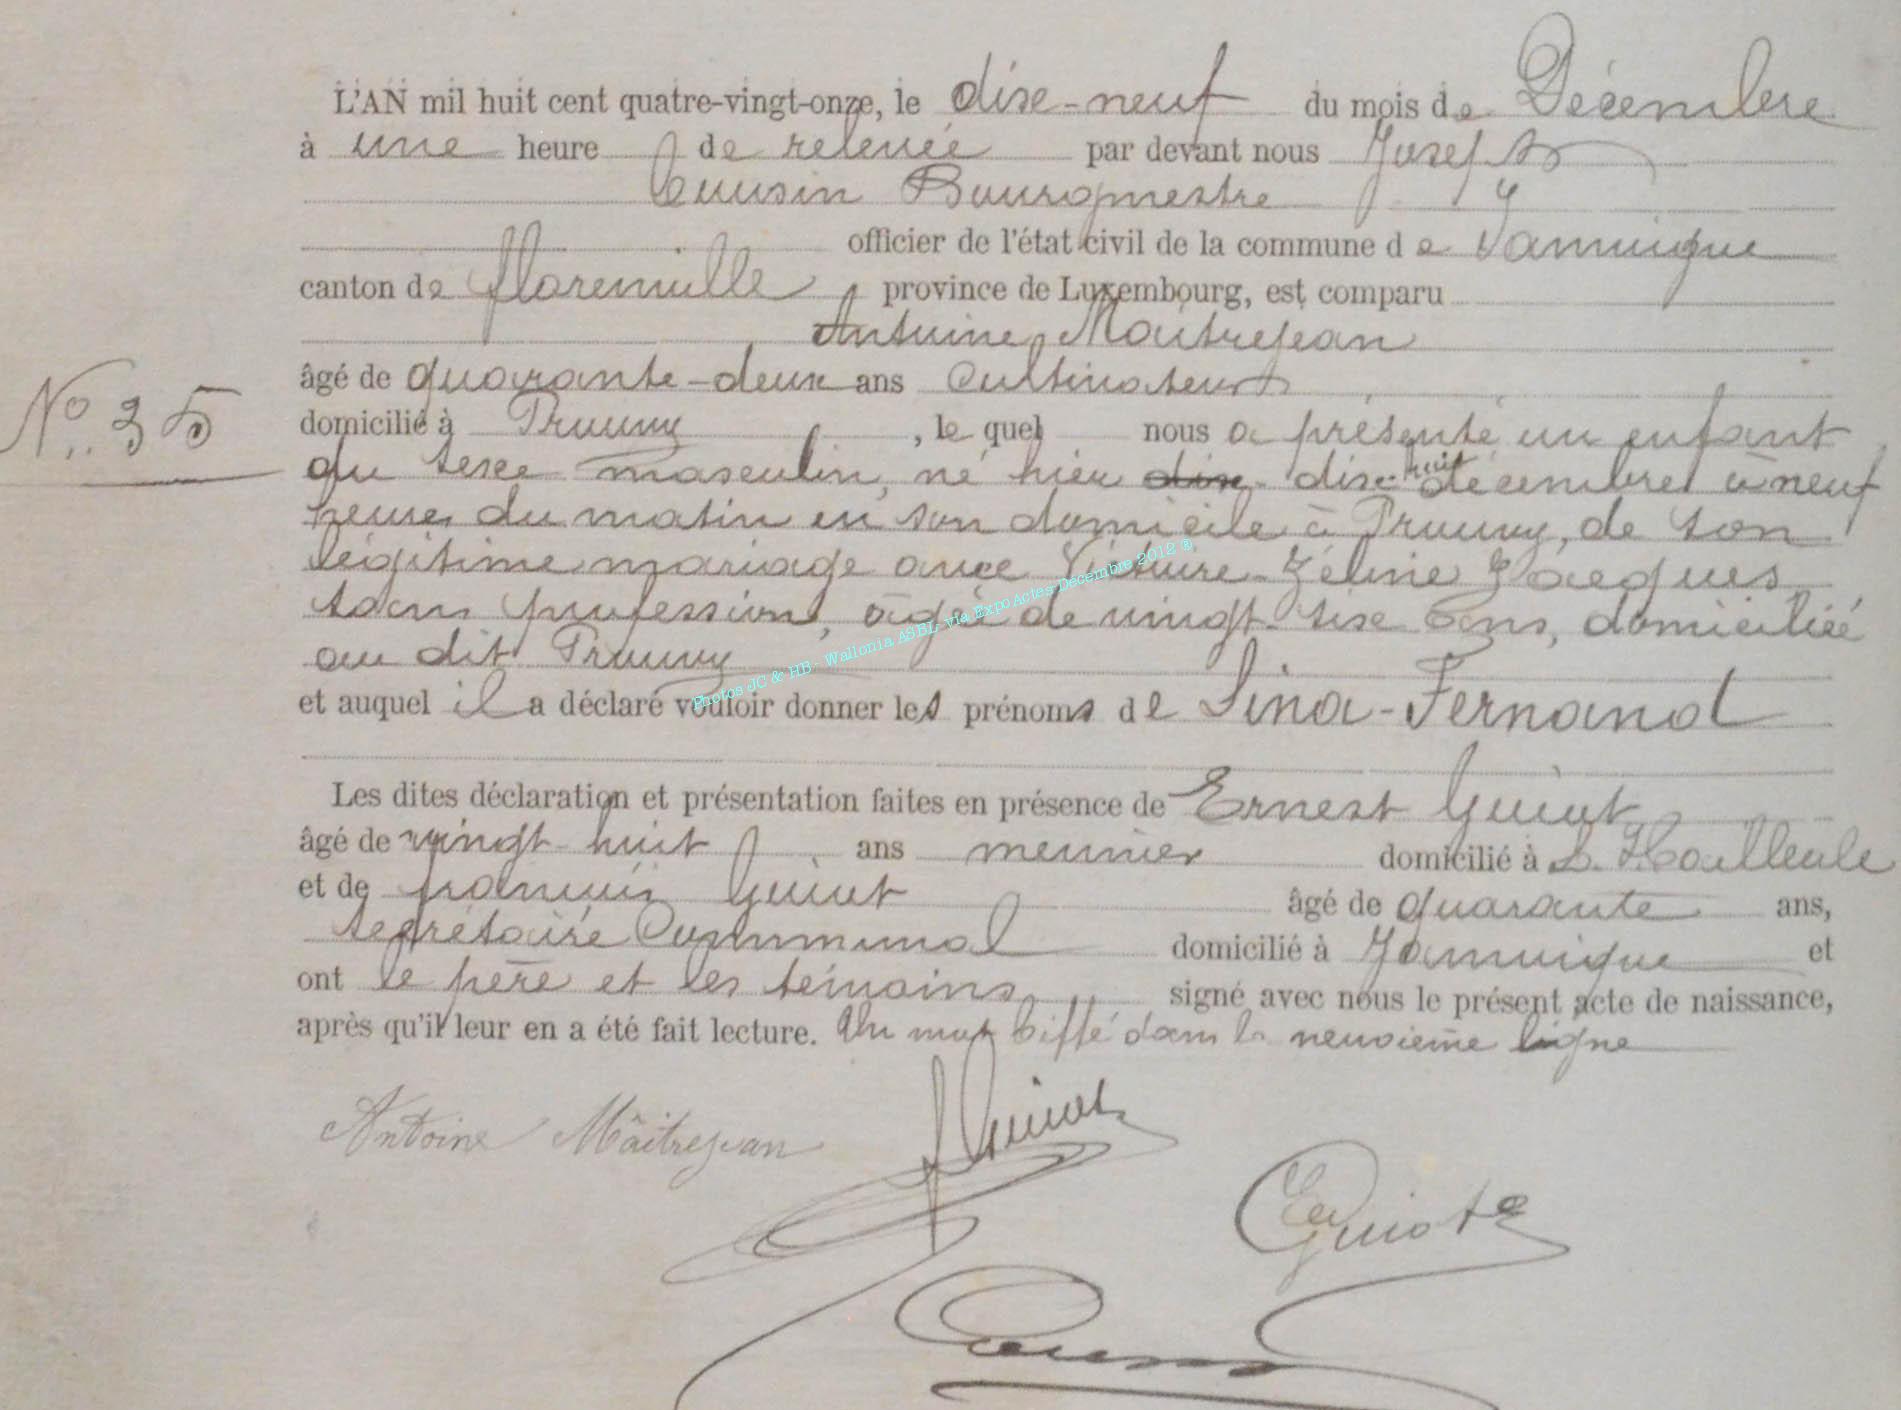 L'AN mil huit cent quatre-vingt-onze, le dixe-neuf du mois de Décembre
à une heure de relevée par devant nous Joseph
Cousin Bourgmestre
officier de l'état civil de la commune de Jamoigne
canton de florenville province de Luxembourg, est comparu
Antoine Maitrejean
âgé de quarante-deux ans Cultivateur
domicilié à Prouvy, le quel nous a présenté un enfant
N° 35
du sexe masculin, né hier dix dix-huit décembre à neuf
heures du matin en son domicile à Prouvy, de son
légitime mariage avec Victoire-Zéline Jacques
sans profession, âgée de vingt-six ans, domiciliée
au dit Prouvy
et auquel il a déclaré vouloir donner les prénoms de Lina-Fernand
Les dites déclaration et présentation faites en présence de Ernest Guiot
âgé de vingt-huit ans meunier domicilié à
et de françois Guiot âgé de quarante ans,
segrétaire Communal domicilié à Jamoigne et
ont le père et les témoins signé avec nous le présent acte de naissance,
après qu'il leur en a été fait lecture. Un mot biffé dans la neuvième ligne
Antoine Mâitrejean
Guiot
E Guiot
Cousin
Photos JC & HB - Wallonia ASBL- via ExpoActes-Décembre 2012 ®